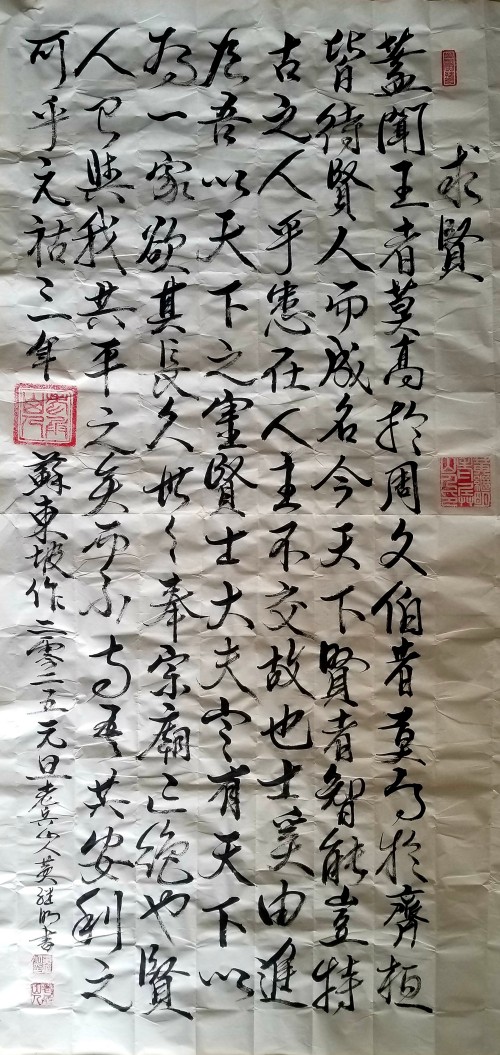 求賢
蓋聞王者莫高於周文伯者莫高於齊桓
皆待賢人而成名今天下賢者智能豈特
古之人乎患在人主不交故也士奚由進
吾以天下之靈賢士大夫定有天下以
為一家欲其長久世々奉宗廟亡絕也賢
人已與我共平之矣而不与吾共安利之
可乎元祐三年
蘇東坡作二零二五元旦老兵山人黃繼明書